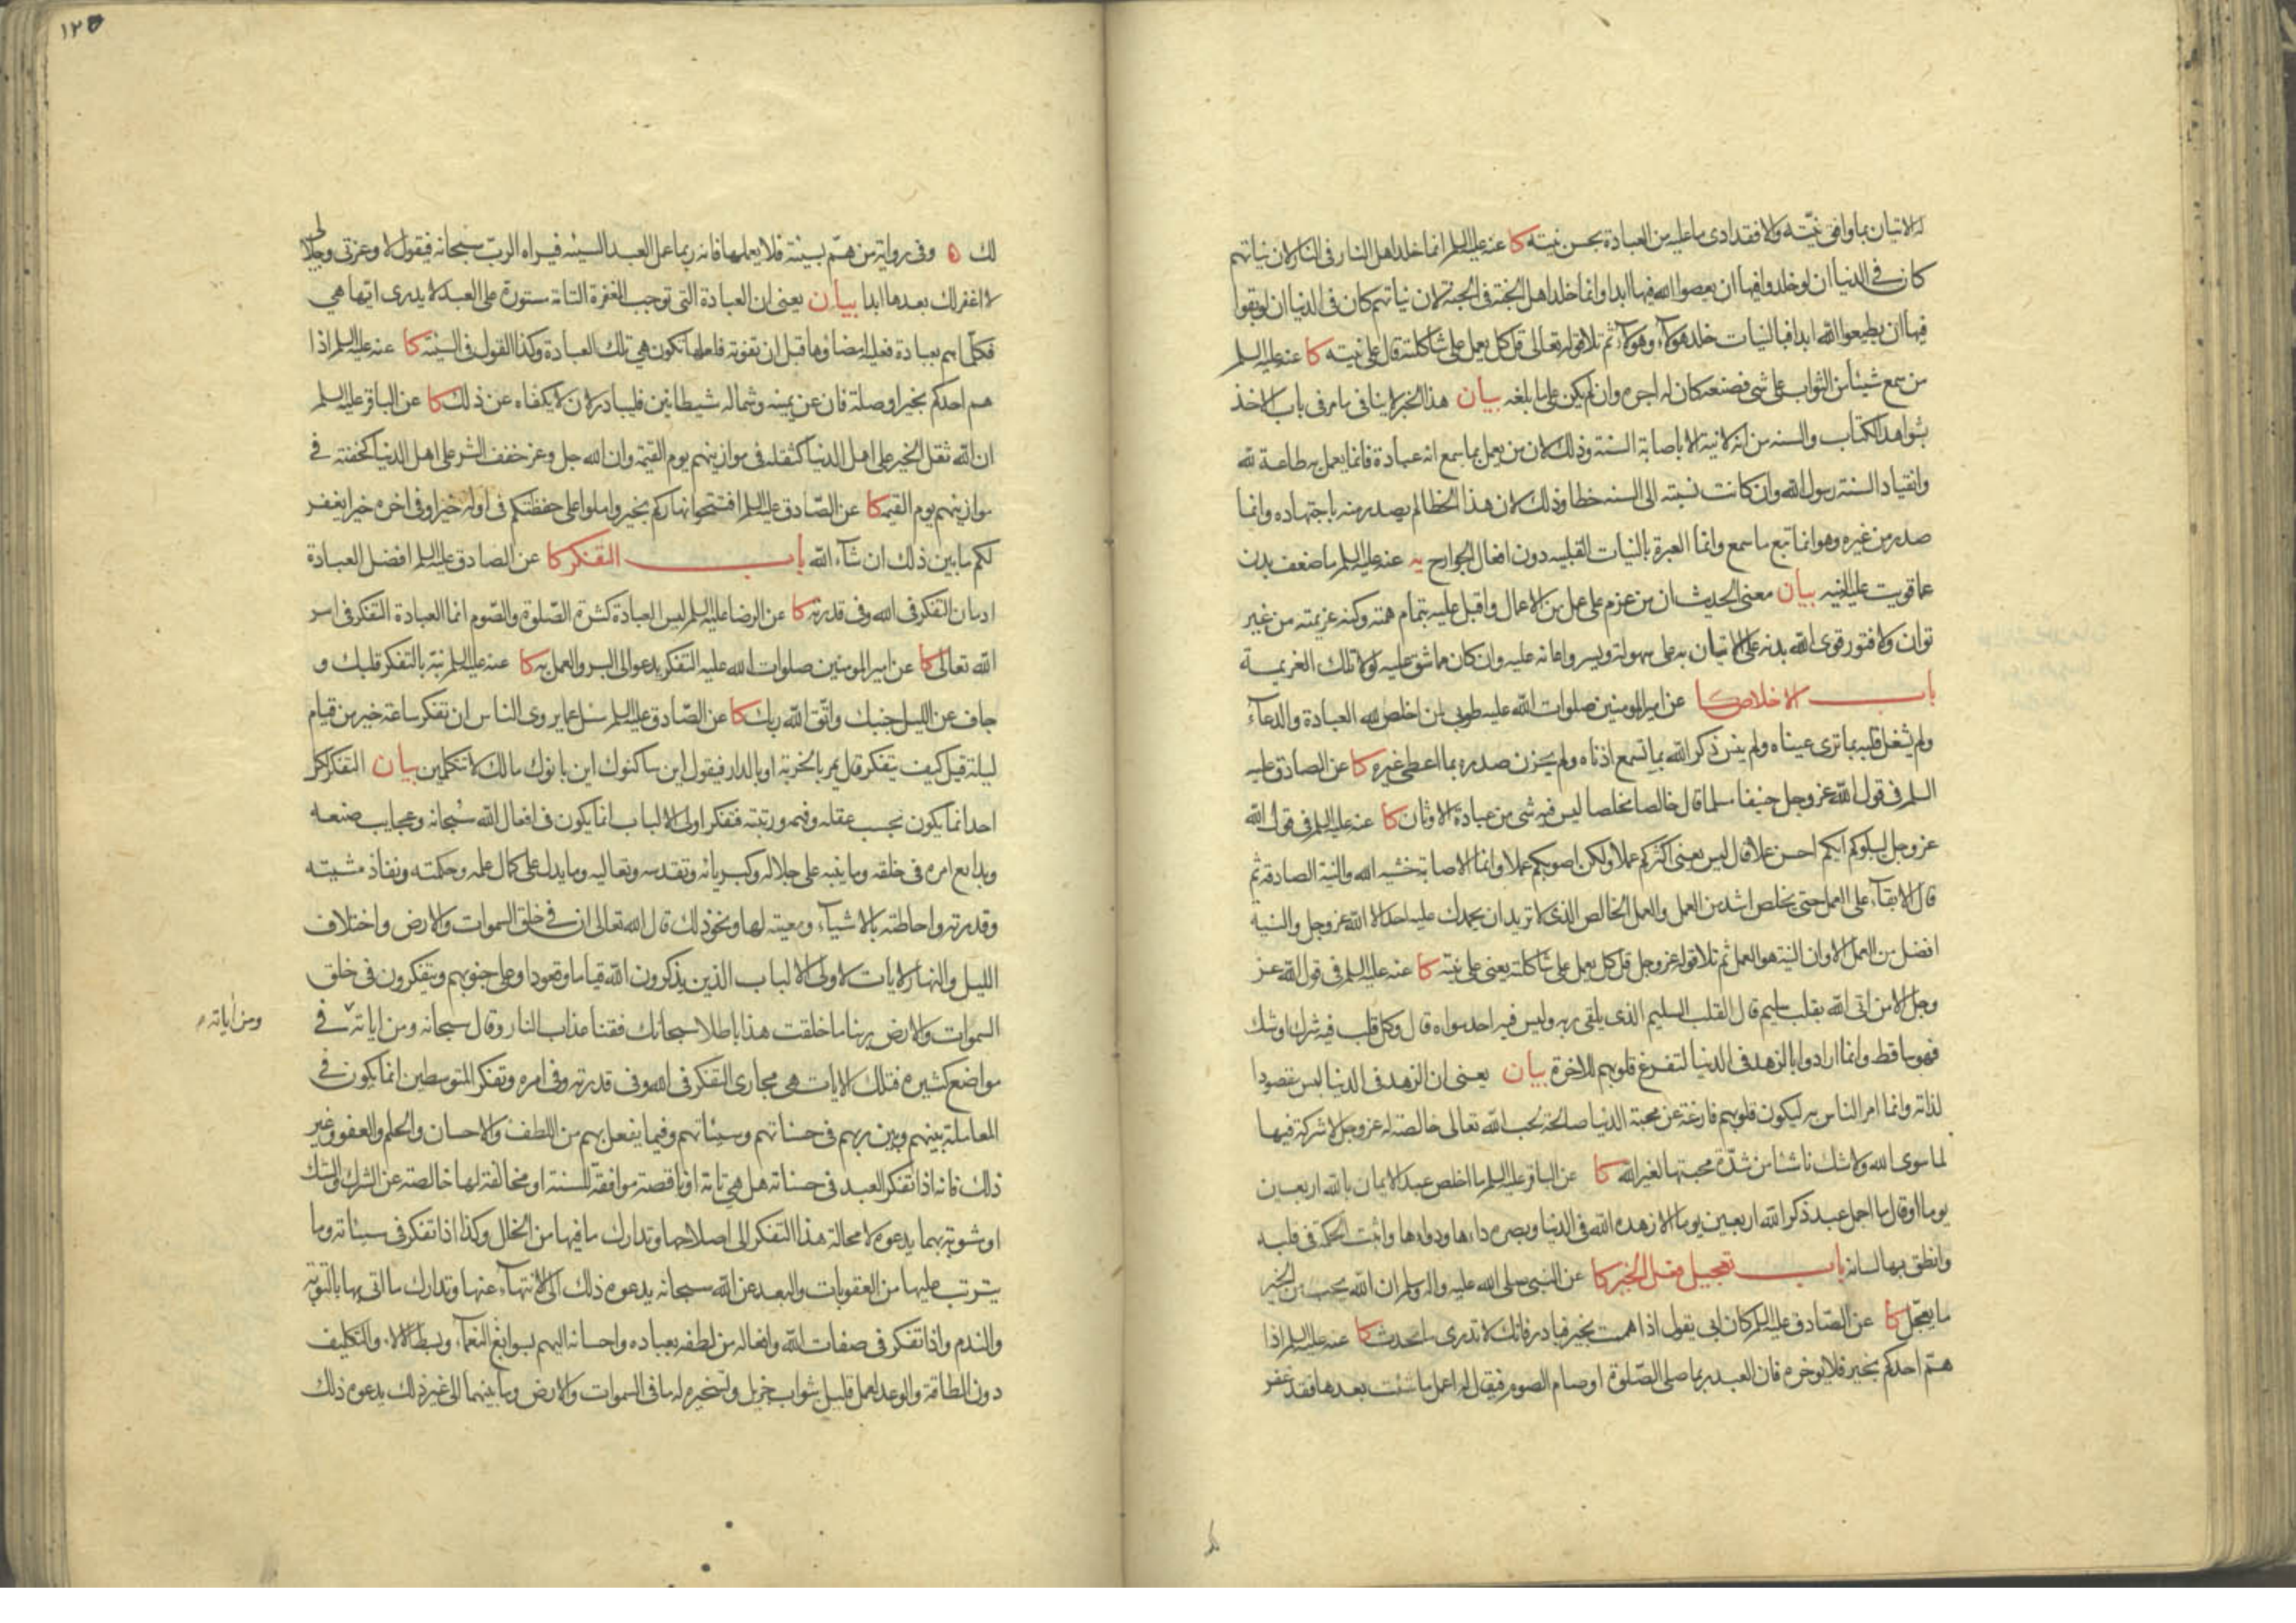 له الاتيان بما وافى نيّته والا فقد ادى ما عليه من العبادة بحسن نيته كا عنه عليه السلم انما خلد اهل النار فى النار لان نياتهم
كان فى الدنيا ان لو خلدوا فيها ان يعصوا الله فيها ابدا وانما خلد اهل الجنة فى الجنة لان نياتهم كان فى الدنيا ان لو بقوا
فيها ان يطيعوا الله ابدا فبالنيات خلد هؤلاء وهؤلاء ثم تلا قوله تعالى قل كل يعمل على شاكلته قال على نيته كا عنه عليه السلم
من سمع شيئا من الثواب على شى فصنعه كان له اجره وان لم يكن على ما بلغه بيان هذا الخبر لا ينافى ما مر فى باب الاخذ
بشواهد الكتاب والسنه من انه لا نية الا باصابة السنة وذلك لان من يعمل بما سمع انه عبادة فانما يعمل به طاعة لله
وانقيادا لسنة رسول الله وان كانت نسبته الى السنه خطا وذلك لان هذا الخطا لم يصدر منه باجتهاده وانما
صدر من غيره وهو انما تبع ما سمع وانما العبرة بالنيات القلبيه دون افعال الجوارح يه عنه عليه السلم ما ضعف بدن
عما قويت عليه النيه بيان معنى الحديث ان من عزم على عمل من الاعمال واقبل عليه بتمام همته وكنه عزيمته من غير
توان ولا فتور قوى الله بدنه على الاتيان به على سهولة ويسر واعانه عليه وان كان مما شق عليه لولا تلك العزيمة
باب الاخلاص كا عن امير المومنين صلوات الله عليه طوبى لمن اخلص لله العبادة والدعاء
ولم يشغل قلبه بما ترى عيناه ولم ينس ذكر الله بما تسمع اذناه ولم يحزن صدره بما اعطى غيره كا عن الصادق عليه
السلم فى قول الله عز وجل حنيفا مسلما قال خالصا مخلصا ليس فيه شى من عبادة الاوثان كا عنه عليه السلم فى قول الله
عز وجل ليبلوكم ايكم احسن عملا قال ليس يعنى اكثركم عملا ولكن اصوبكم عملا وانما الاصابة خشيه الله والنية الصادقة ثم
قال الابقاء على العمل حتى يخلص اشد من العمل والعمل الخالص الذى لا تريد ان يحمدك عليه احد الا الله عز وجل والنية
افضل من العمل الا وان النية هو العمل ثم تلا قوله عز وجل قل كل يعمل على شاكلته يعنى على نيته كا عنه عليه السلم فى قول الله عز
وجل الا من اتى الله بقلب سليم قال القلب السليم الذى يلقى ربه وليس فيه احد سواه قال وكل قلب فيه شرك او شك
فهو ساقط وانما ارادوا بالزهد فى الدنيا لتفرغ قلوبهم للاخرة بيان يعنى ان الزهد فى الدنيا ليس مقصودا
لذاته وانما امر الناس به ليكون قلوبهم فارغة عن محبة الدنيا صالحة لحب الله تعالى خالصة له عز وجل لا شركة فيها
لما سوى الله ولا شك ناشئا من شدّة محبتها لغير الله كا عن الباقر عليه السلم ما اخلص عبد الايمان بالله اربعين
يوما او قال ما اجمل عبد ذكر الله اربعين يوما الا زهده الله فى الدنيا وبصره داءها ودواءها واثبت الحكمة فى قلبه
وانطق بها لسانه باب تعجيل فعل الخير كا عن النبى صلى الله عليه واله وسلم ان الله يحب من الخير
ما يعجّل كا عن الصّادق عليه السلم كان ابى يقول اذا هممت بخير فبادر فانك لا تدرى ما يحدث كا عنه عليه السلم اذا
همّ احدكم بخير فلا يوخره فان العبد ربما صلى الصّلوة او صام الصوم فيقال له اعمل ما شئت بعدها فقد غفر
١٢٥
لك ٥ وفى رواية من همّ بسيئة فلا يعملها فانه ربما عمل العبد السيئه فيراه الربّ سبحانه فيقول لا وعزتى وجلالى
لا اغفر لك بعدها ابدا بيان يعنى ان العبادة التى توجب المغفرة التامّة مستورة على العبد لا يدرى ايّها هى
فكلّما هم بعبادة فعليه امضاؤها قبل ان تفوته فلعلها تكون هى تلك العبادة وكذا القول فى السيّئة كا عنه عليه السلم اذا
هم احدكم بخير او صلة فان عن يمينه وشماله شيطانين فليبادر لان لا يكفاه عن ذلك كا عن الباقر عليه السلم
ان الله ثقل الخير على اهل الدنيا كثقله فى موازينهم يوم القيمة وان الله جل وعز خفف الشر على اهل الدنيا كخفته فى
موازينهم يوم القيمه كا عن الصّادق عليه السلم افتتحوا نهاركم بخير واملوا على حفظتكم فى اوله خيرا وفى اخره خيرا يغفر
لكم ما بين ذلك ان شاء الله باب التفكر كا عن الصادق عليه السلم افضل العبادة
ادمان التفكر فى الله وفى قدرته كا عن الرضا عليه السلم ليس العبادة كثرة الصّلوة والصّوم انما العبادة التفكر فى امر
الله تعالى كا عن امير المومنين صلوات الله عليه التفكر يدعو الى البر والعمل به كا عنه عليه السلم نبّه بالتفكر قلبك و
جاف عن الليل جنبك واتّق الله ربك كا عن الصّادق عليه السلم سئل عما يروى الناس ان تفكر ساعة خير من قيام
ليلة قيل كيف يتفكر قال يمر بالخربة او بالدار فيقول اين ساكنوك اين بانوك مالك لا تتكلمين بيان التفكر لكل
احد انما يكون بحسب عقله وفهمه ورتبته فتفكر اولى الالباب انما يكون فى افعال الله سبحانه وعجايب صنعه
وبدايع امره فى خلقه وما ينبه على جلاله وكبريائه وتقدسه وتعاليه وما يدل على كمال علمه وحكمته ونفاذ مشيته
وقدرته واحاطته بالاشياء ومعيته لها ونحو ذلك قال الله تعالى ان فى خلق السموات والارض واختلاف
الليل والنهار لايات لاولى الالباب الذين يذكرون الله قياما وقعودا وعلى جنوبهم ويتفكرون فى خلق
السموات والارض ربنا ما خلقت هذا باطلا سبحانك فقنا عذاب النار وقال سبحانه ومن اياته فى
ومن اياته
مواضع كثيره فتلك الايات هى مجارى التفكر فى الله وفى قدرته وفى امره وتفكر المتوسطين انما يكون فى
المعاملة بينهم وبين ربهم فى حسناتهم وسيئاتهم وفيما يفعل بهم من اللطف والاحسان والحلم والعفو وغير
ذلك فانه اذا تفكر العبد فى حسناته هل هى تامّة او ناقصة موافقة للسنة او مخالفة لها خالصة عن الشرك والشك
او مشوبة بهما يدعوه لا محالة هذا التفكر الى اصلاحها وتدارك ما فيها من الخلل وكذا اذا تفكر فى سيئاته وما
يترتب عليها من العقوبات والبعد عن الله سبحانه يدعوه ذلك الى الانتهاء عنها وتدارك ما اتى بها بالتوبة
والندم واذا تفكر فى صفات الله وافعاله من لطفه بعباده واحسانه اليهم بسوابغ النعماء وبسط الالاء والتكليف
دون الطاقة والوعد لعمل قليل بثواب جزيل وتسخيره له ما فى السموات والارض وما بينهما الى غير ذلك يدعوه ذلك